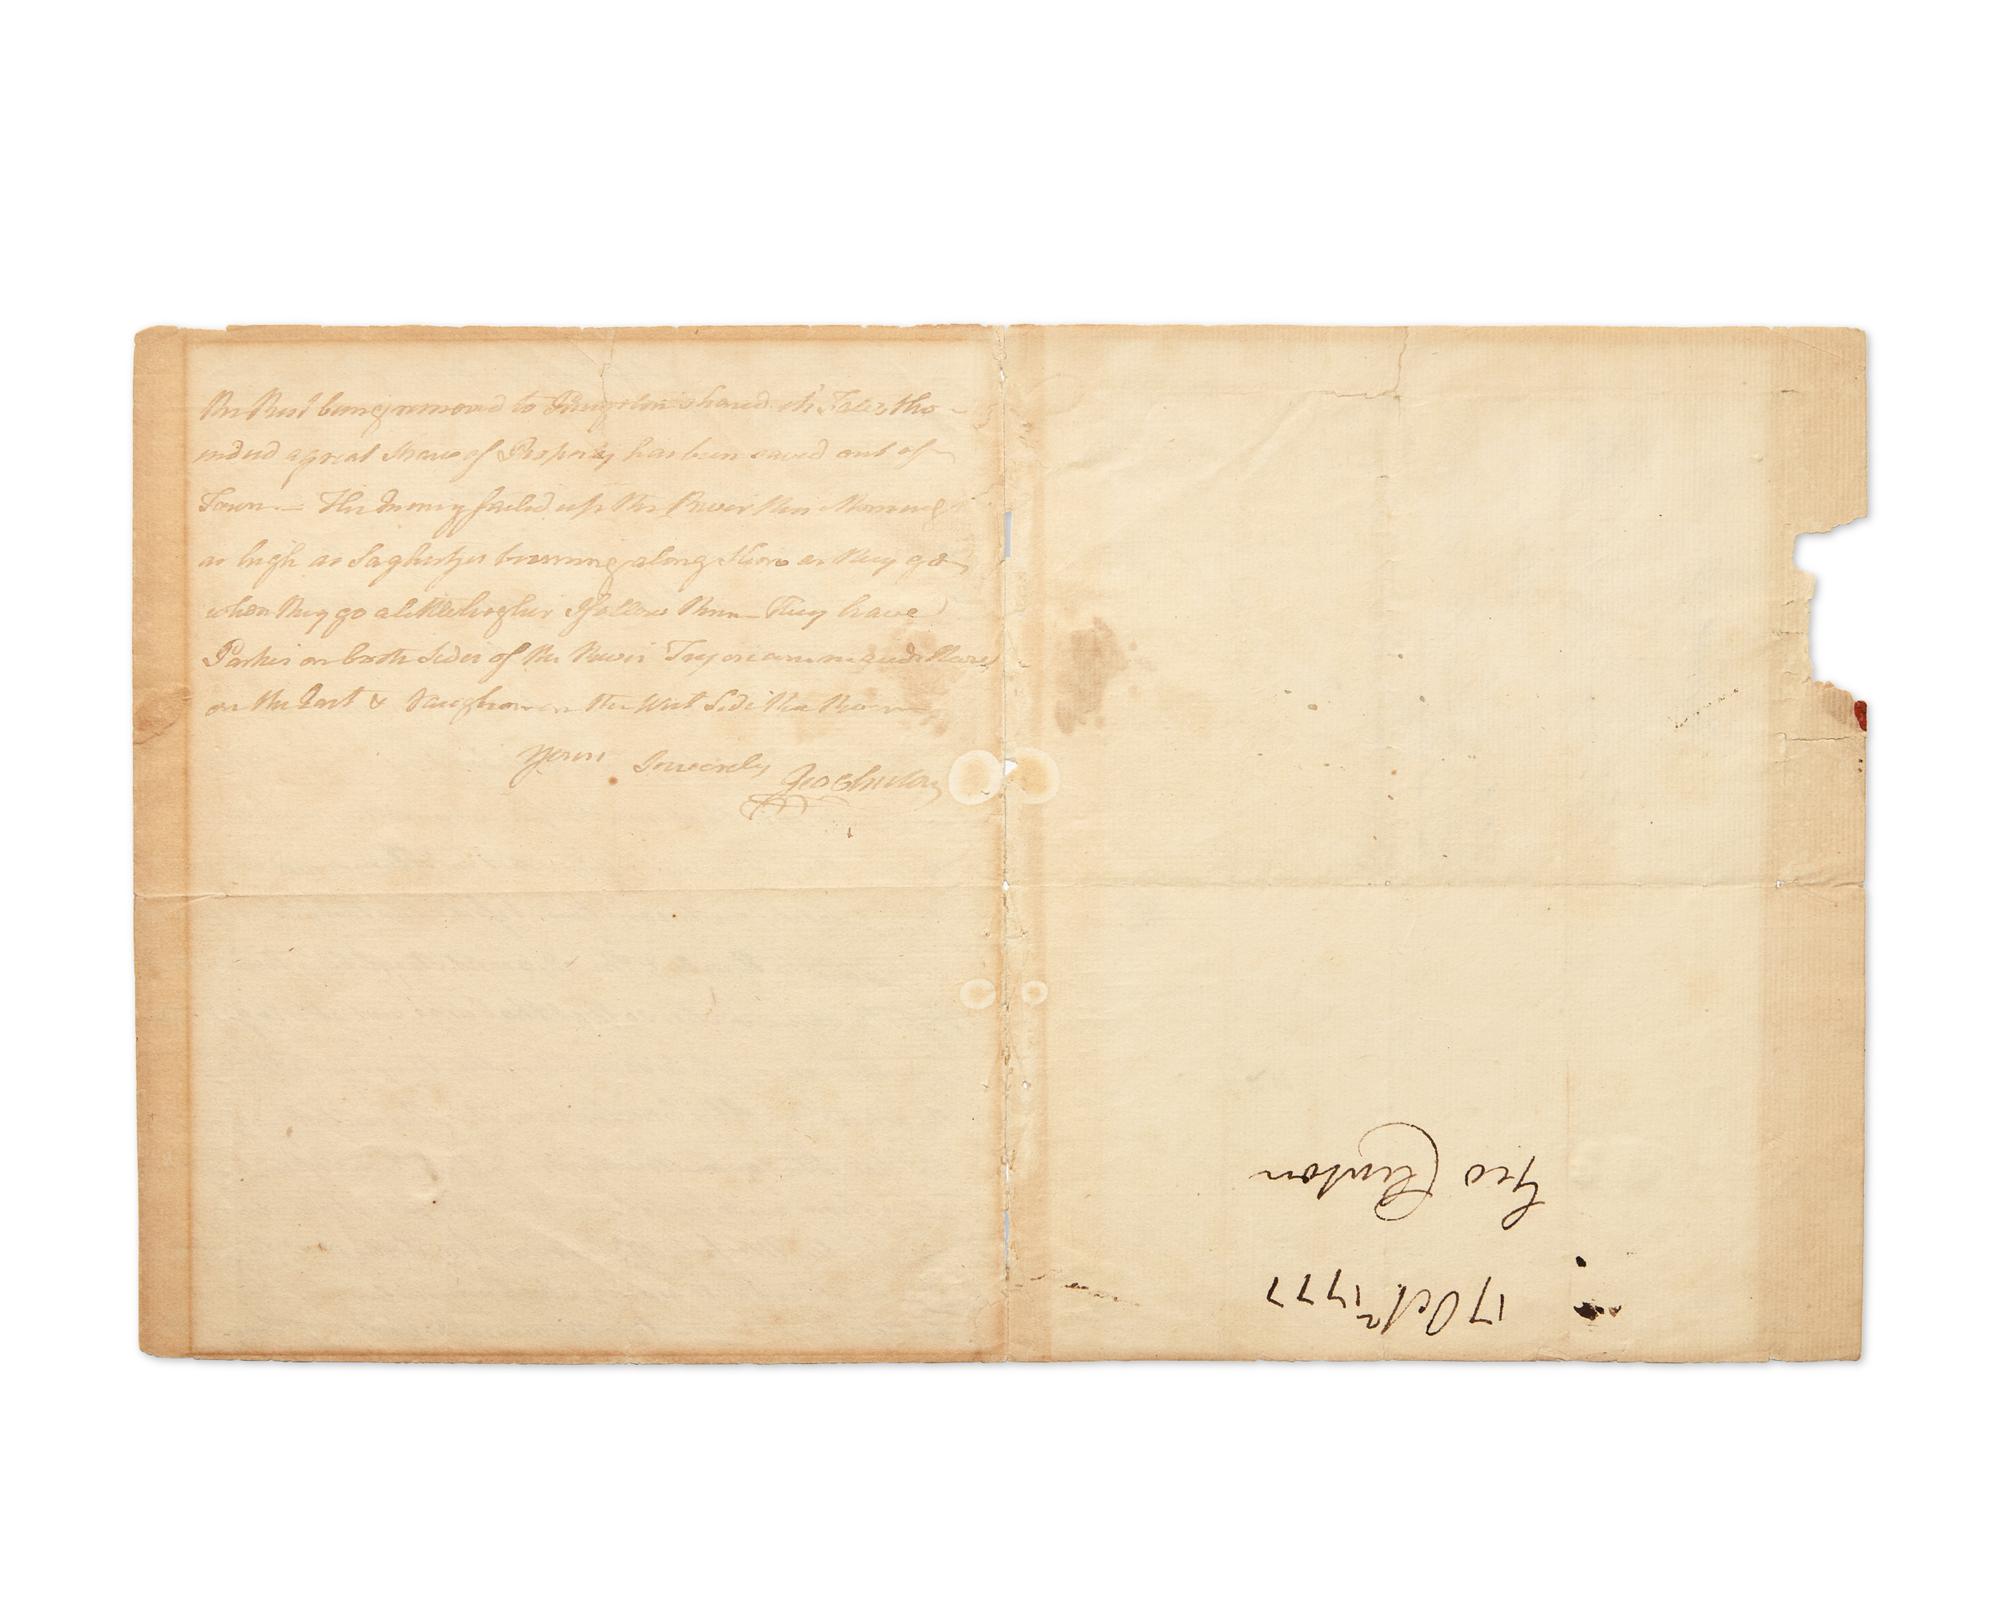 the Rest being removed to Kingston shared its Fate, tho
indeed a great Share of Property has been saved out of
Town — The Enemy sailed up the River this Morning
as high as Saghertys burning along Shore as they go
when they go a little higher I follow them — They have
Parties on both Sides of the River Tryon comm
on the East & Vaughan on the West Side the River
Yours Sincerely
Geo Clinton
Geo Clinton
17 Octr 1777